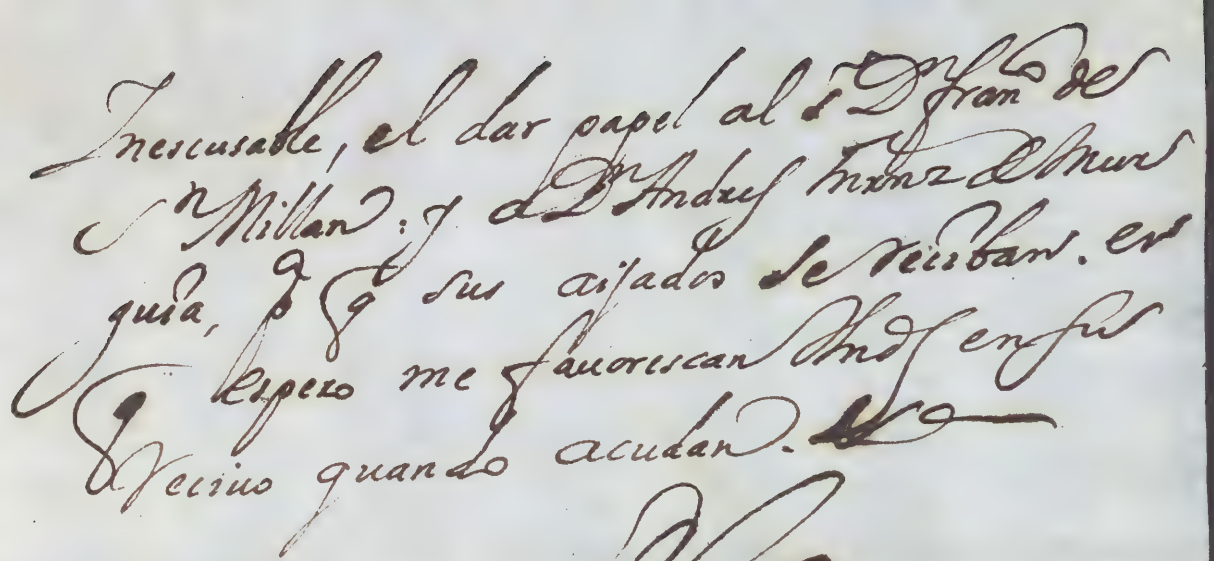 Inescusable, el dar papel al s.r D.n fran.co de
S.n Millan. y a D.n Andres frnz de Mur
guia, p.a q sus aijados se reciban. en
q espero me fauorescan Vmds en su
recivo quando acudan.